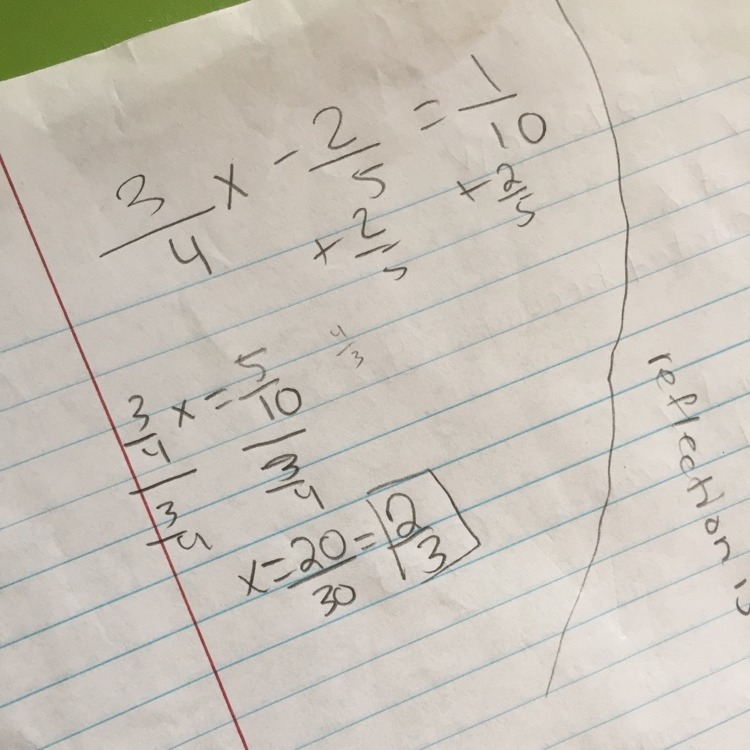 3/4 x - 2/5 = 1/10
+ 2/5 + 2/5
3/4 x = 5/10 4/3
3/4 3/4
x = 20/30 = 2/3
reflection is